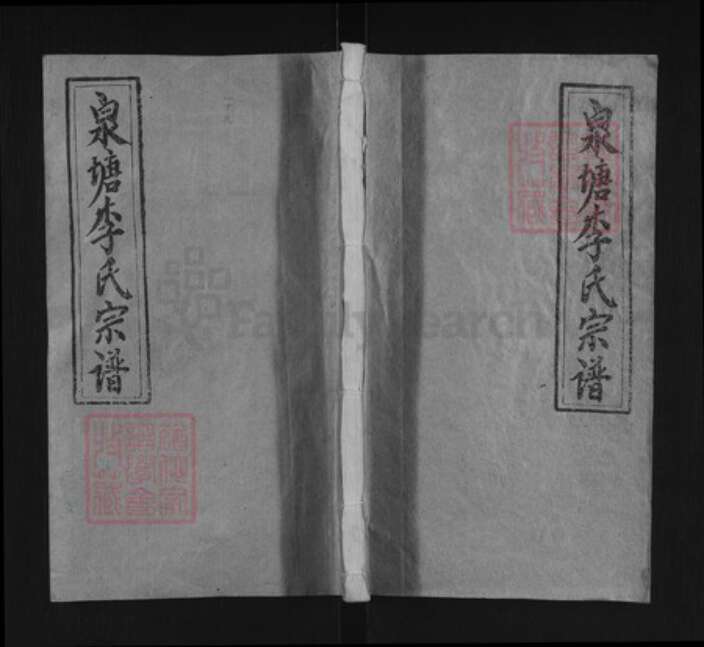 泉塘李氏宗谱
泉塘李氏宗谱
FamilySearch